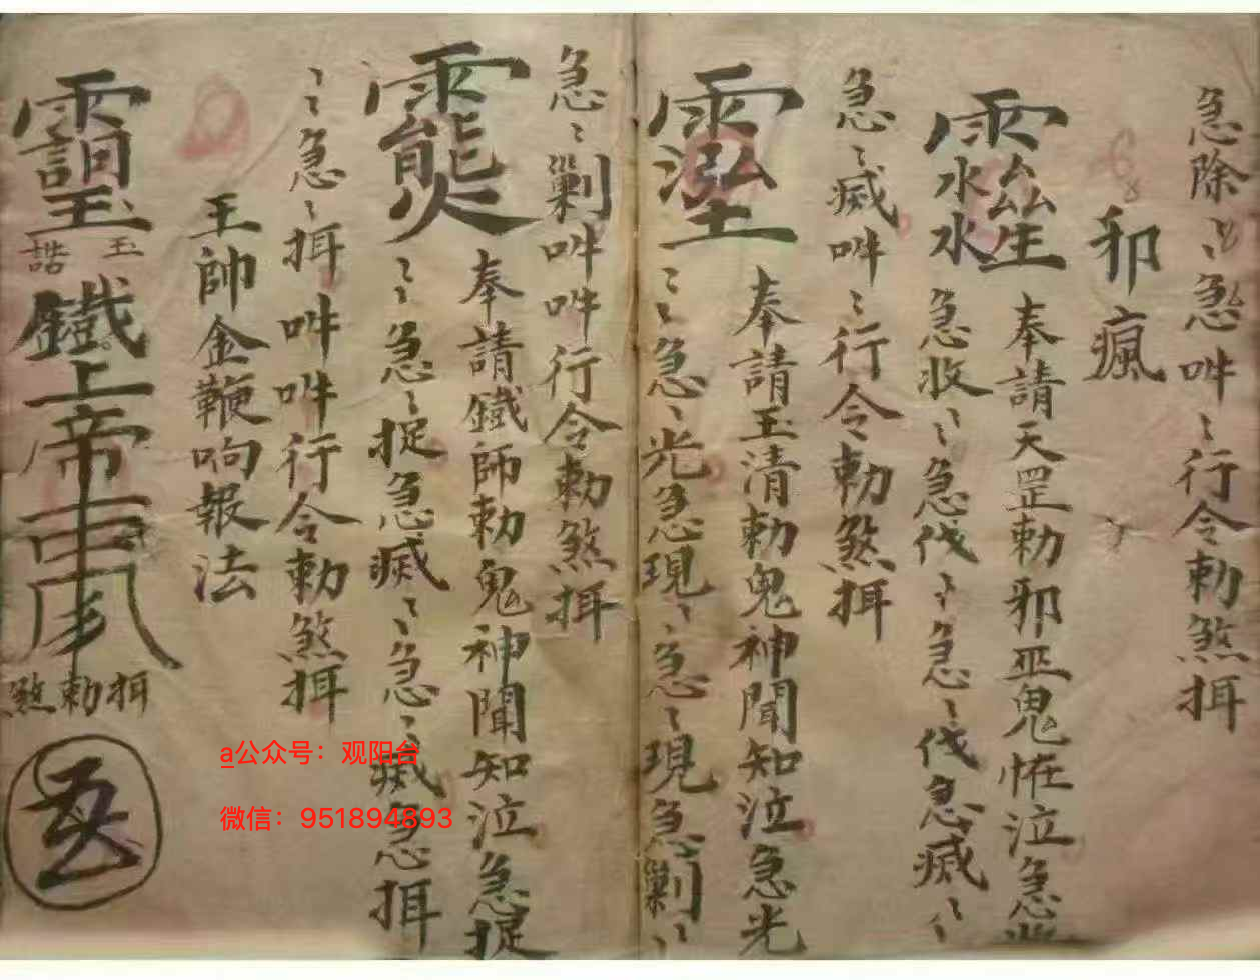 急除〻急吽〻行令勅煞揖
邪瘋
奉請天罡勅邪巫鬼恠泣急
急收〻急伐〻急〻伐急滅〻
急〻滅吽〻行令勅煞揖
奉請玉清勅鬼神聞知泣急光
〻急〻光急現〻急〻現急剿〻
急〻剿吽吽行令勅煞揖
奉請鐵師勅鬼神聞知泣急捉
〻急〻捉急滅〻急〻滅急揖
〻急〻揖吽吽行令勅煞揖
王帥金鞭响報法
玉
誥
鐵上帝
揖勅煞
a公众号：观阳台
微信：951894893